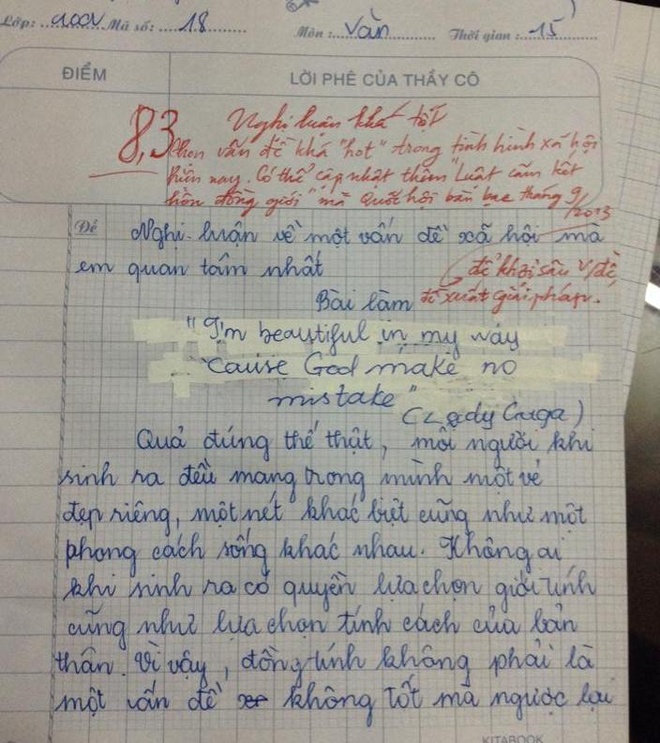 Lớp: 10CV Mã số: 18 Môn: Văn Thời gian: 15
ĐIỂM LỜI PHÊ CỦA THẦY CÔ
8,3 Nghị luận khá tốt
Chọn vấn đề khá "hot" trong tình hình xã hội
hiện nay. Có thể cập nhật thêm "Luật cấm kết
hôn đồng giới" mà Quốc hội bàn bạc tháng 9/2013
để khơi sâu v/đề,
đề xuất giải pháp.
Đề Nghị luận về một vấn đề xã hội mà
em quan tâm nhất
Bài làm
"I'm beautiful in my way
'cause God make no
mistake"
(Lady Gaga)
Quả đúng thế thật, mỗi người khi
sinh ra đều mang trong mình một vẻ
đẹp riêng, một nét khác biệt cũng như một
phong cách sống khác nhau. Không ai
khi sinh ra có quyền lựa chọn giới tính
cũng như lựa chọn tính cách của bản
thân. Vì vậy, đồng tính không phải là
một vấn đề không tốt mà ngược lại
KITABOOK